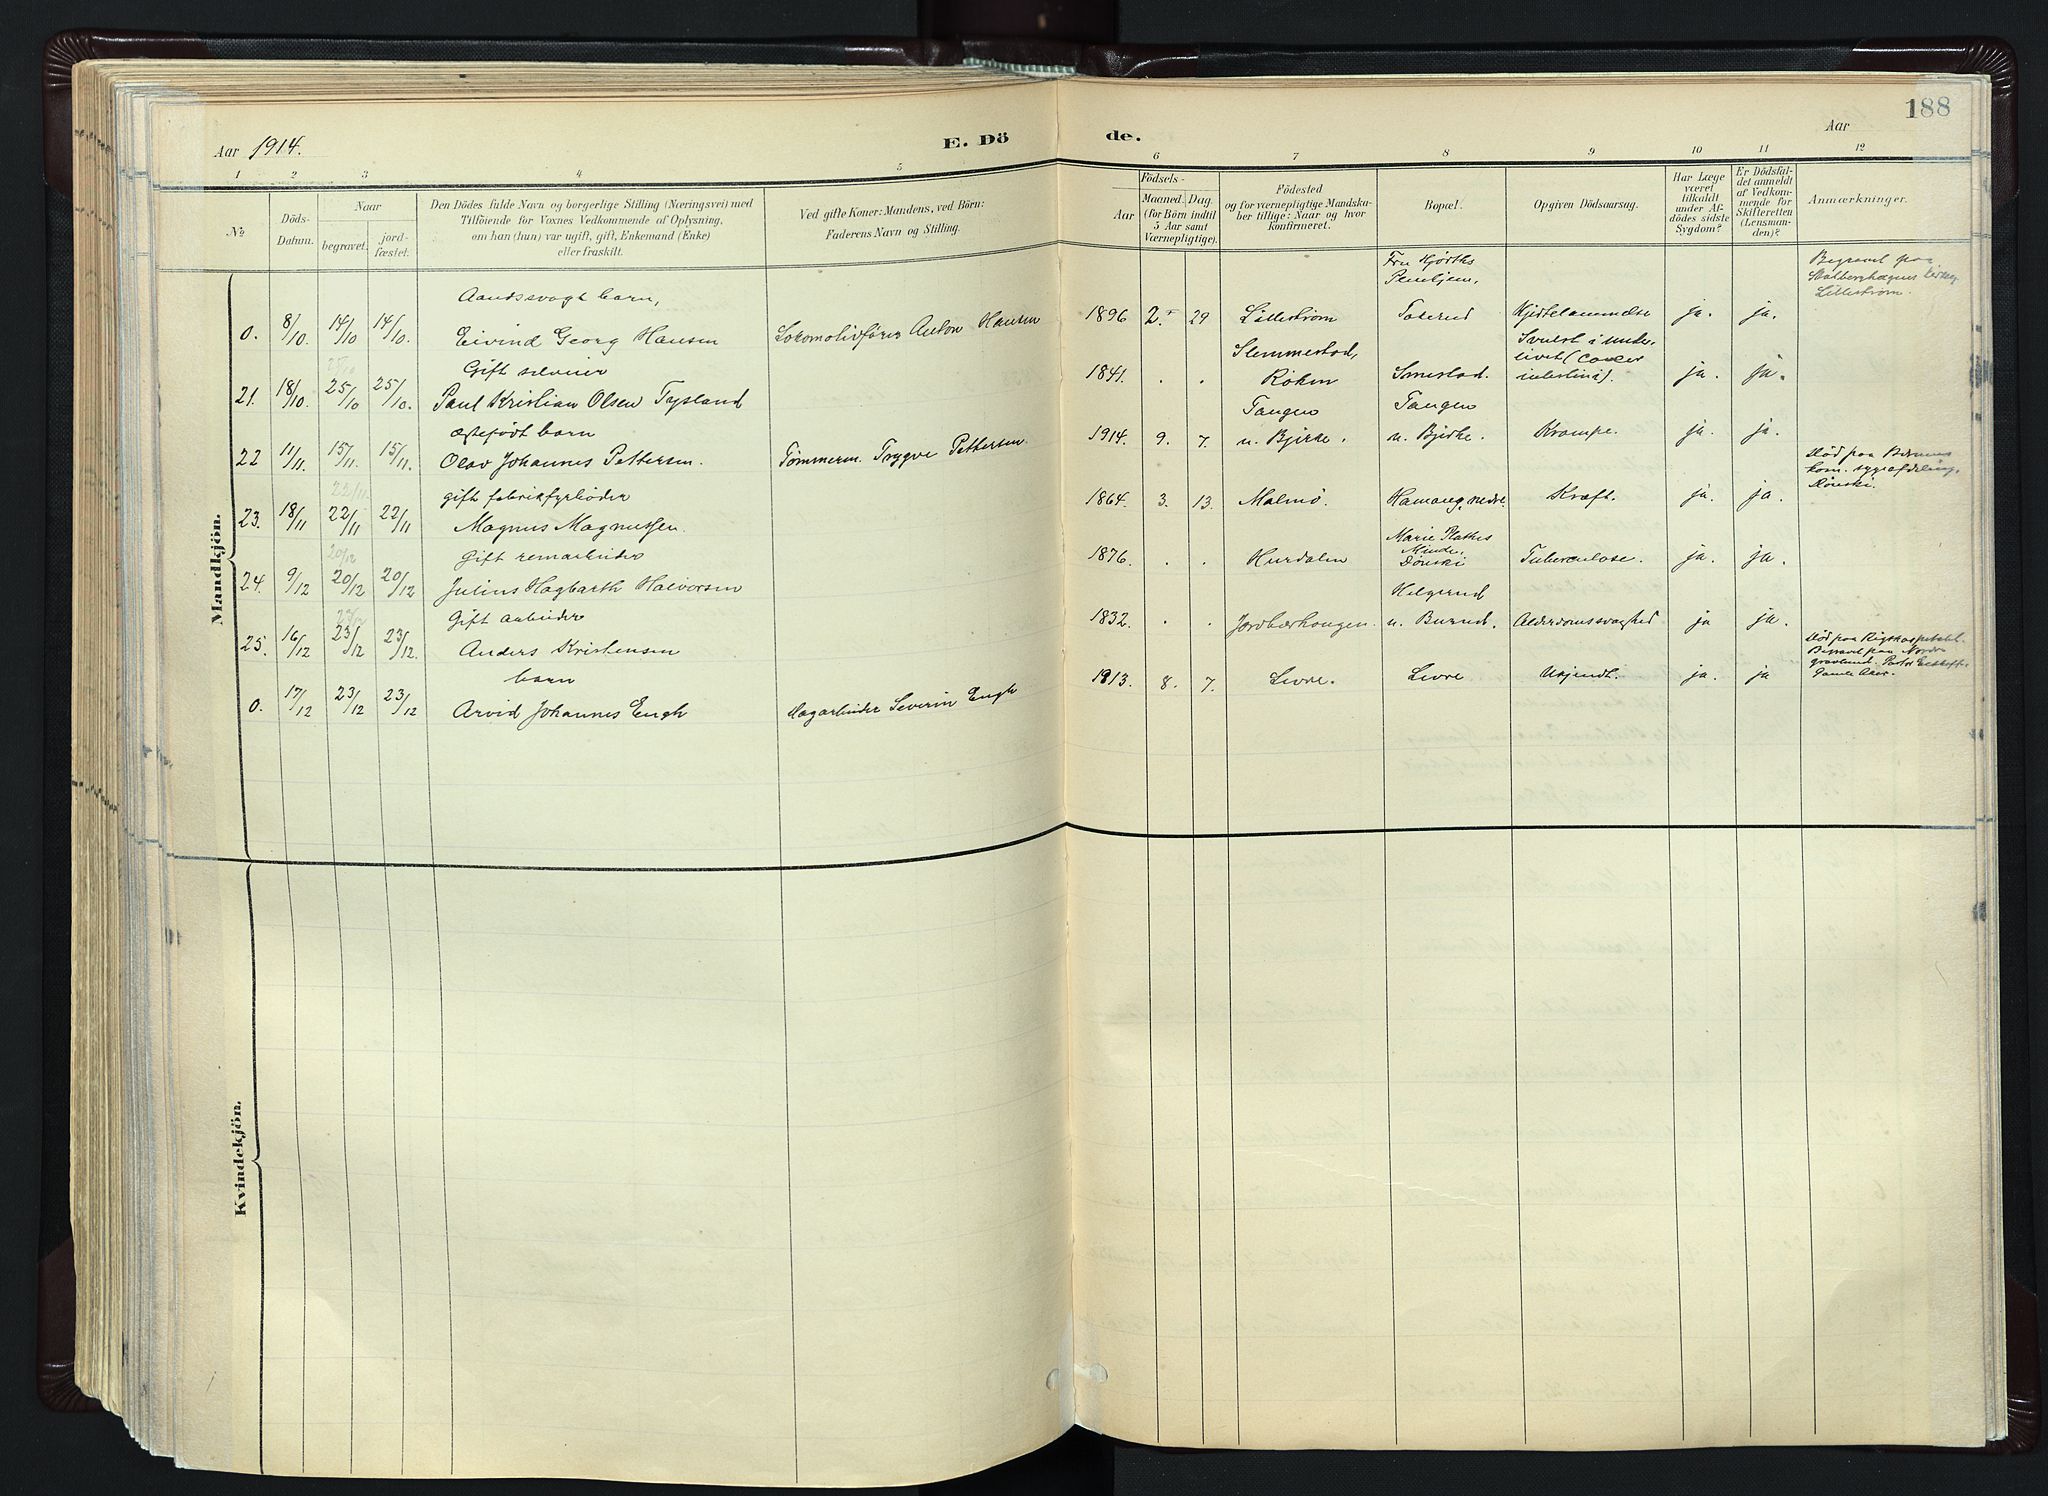 188
Aar 1914.
E. Dö
de.
Aar
1 2 3 4 5 6 7 8 9 10 11 12
No
Döds-Datum.
Naar
begravet.
jord-fæstet.
Den Dödes fulde Navn og borgerlige Stilling (Næringsvei) med
Tilföiende for Voxnes Vedkommende af Oplysning,
om han (hun) var ugift, gift, Enkemand (Enke)
eller fraskilt.
Ved gifte Koner: Mandens, ved Börn:
Faderens Navn og Stilling.
Födsels-
Aar
Maaned. Dag.
(for Börn indtil
5 Aar samt
Værnepligtige).
Födested
og for værnepligtige Mandska-
ber tillige: Naar og hvor
konfirmeret.
Bopæl.
Opgiven Dödsaarsag.
Har Læge
været
tilkaldt
under Af-
dödes sidste
Sygdom?
Er Dödsfal-
det anmeldt
af Vedkom-
mende for
Skifteretten
(Lensman-
den)?
Anmærkninger.
Mandkjön.
Aandssvagt barn, Fru Hjorths Pleiehjem, Begravet paa
0. 8/10 14/10 14/10 Eivind Georg Hansen Lokomotivfører Anton Hansen 1896 2. 29 Lillestrøm Toverud Hjertelammelse ja. ja. Lillestrøm.
Gift Slemmestad, Svulst i under-
21. 18/10. 25/10 25/10 25/10. Paul Kristian Olsen Tysland 1841. . . Røken Smestad. livet (Cancer intestini). ja. ja.
ægtefødt barn Tangen Tangen
22 11/11. 15/11. 15/11. Olav Johannes Pettersen. Tømmerm. Trygve Pettersen. 1914. 9. 7. u. Bjerke. u. Bjerke. Krampe. ja. ja.
gift fabrikfyrbøder Død paa Bærums kom. sygeafdeling, Dønski.
23. 18/11 22/11 22/11 22/11 Magnus Magnussen. 1864. 3. 13. Malmö. Hamang, nedre. Kræft. ja. ja.
Gift Marie Plathes Minde,
24. 9/12 20/12 20/12 20/12 Julius Hagbarth Halvorsen 1876. . . Hurdalen Dønski Tuberculose. ja. ja.
Gift arbeider Helgerud
25. 16/12 23/12 23/12 23/12. Anders Kristensen 1832. . . Jordbærhaugen. u. Burud. Alderdomssvaghed ja ja.
barn Død paa Rigshospitalet. Begravet paa Nordre gravlund.
0. 17/12 23/12 23/12 Arvid Johannes Engh Severin Engh 1913. 8. 7. Levre. Levre Ukjendt. ja. ja Gamle Aker.
Kvindekjön.